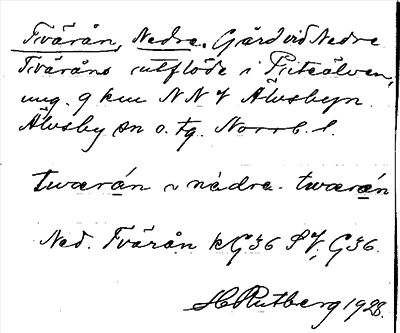 Tvärån, Nedre. Gård vid Nedre
Tväråns utflöde i Piteälven,
ung. 9 km NNV Älvsbyn.
Älvsby sn o. tg. Norrb. l.
twærán ~ nèdra- twærán
Ned. Tvärån kG36 SV, G36.
H Rutberg 1928.